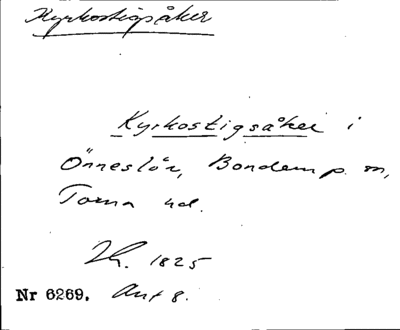 Kyrkostigsåker
Kyrkostigsåker i
Önneslöv, Bonderup sn,
Torna hd.
1825
Nr 6269. Akt 8.